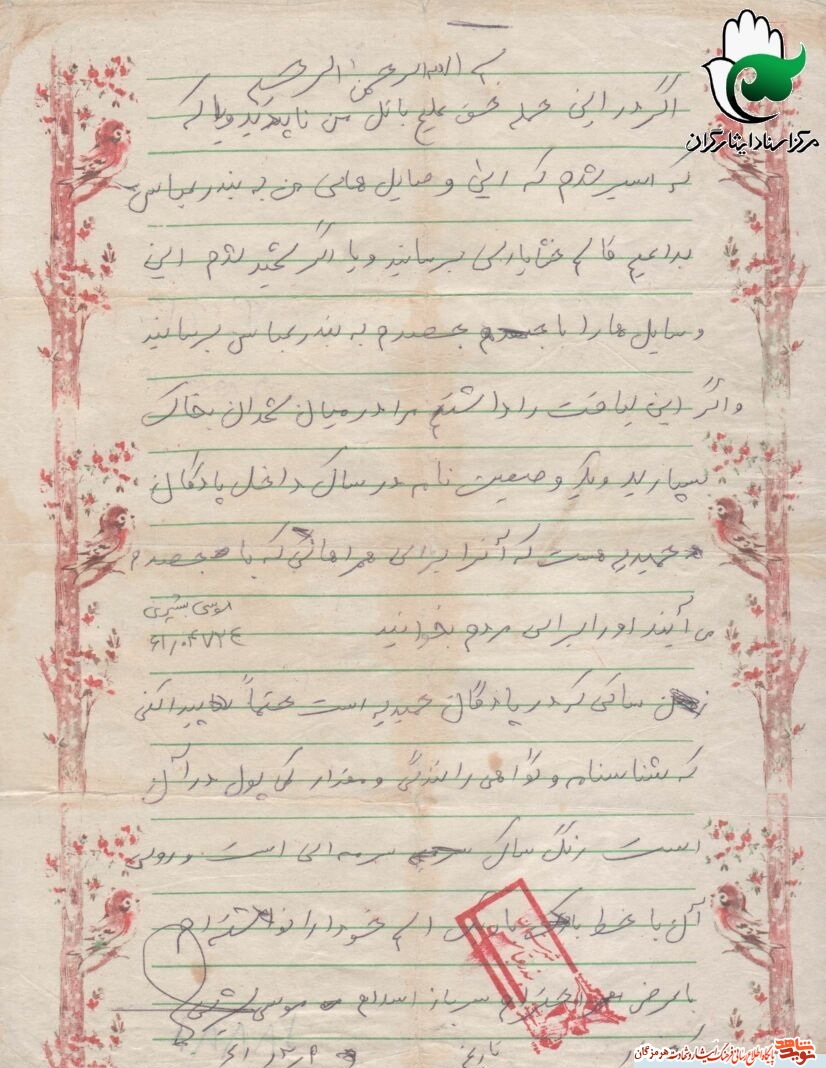 بسم الله الرحمن الرحیم
اگر در این حمله حق علیه باطل من ناپدید و یا که
که اسیر شدم که این وصایل های من به بندرعباس
برسانید و یا اگر شهید شدم این
وسایل ها را با جسدم به بندرعباس برسانید
و اگر این لیاقت را داشتم مرا در میان شهدان بخاک
بسپارید و یک وصیت نامه در ساک داخل پادگان
حمیدیه هست که آنرا برای همراهانی که با جسدم
می آیند و برای مردم بخوانید
موسی
ساکی که در پادگان حمیدیه است حتماً پیدا کنی
که شناسنامه و گواهی رانندگی و مقدار کمی پول در آن
است رنگ ساک سرمه ای است و روی
آن با خط اسم خود را نوشته ام
با عرض احترام سرباز اسلام موسی
تاریخ
مرکز اسناد ایثارگران
نوید شاهد
پایگاه اطلاع رسانی فرهنگ ایثار و شهادت هرمزگان